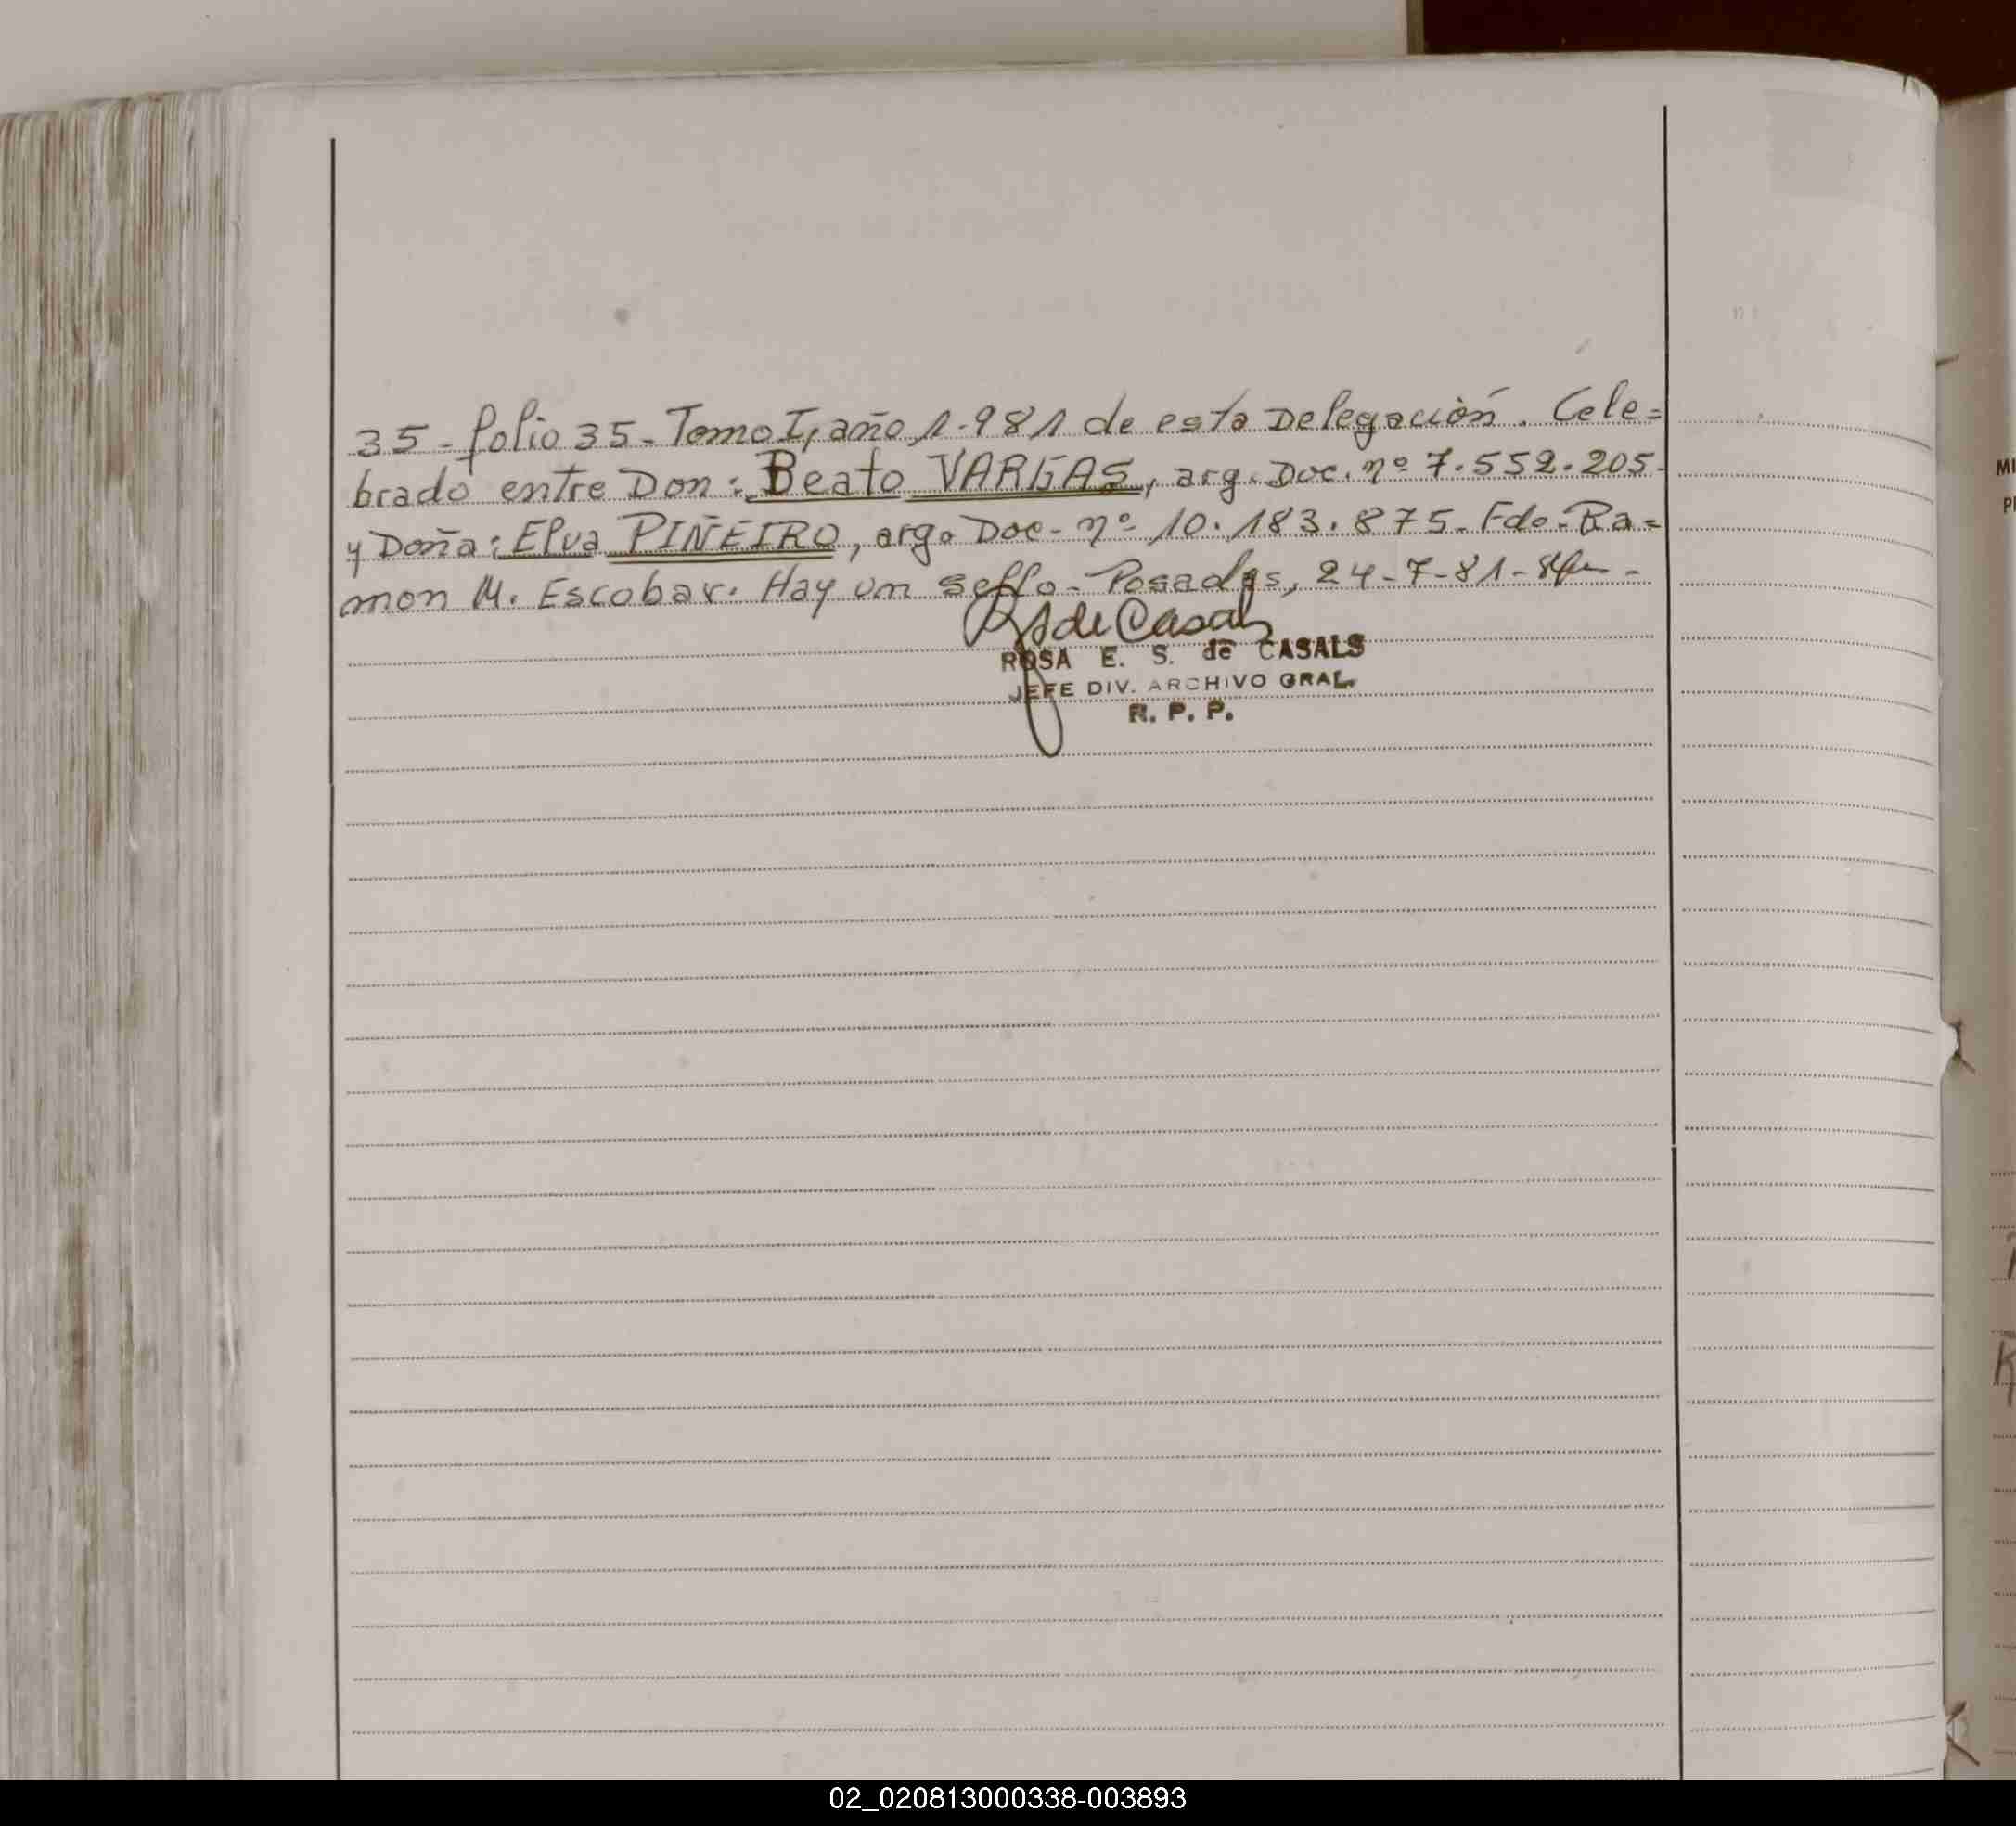 35 - folio 35 - Tomo I, año 1.981 de esta Delegación. Cele=
brado entre Don: Beato VARGAS, arg. Doc. nº 7.552.205-
y Doña: Elva PIÑEIRO, arg. Doc- nº 10.183.875- Fdo. Ra=
mon M. Escobar. Hay un sello - Posadas, 24-7-81-
RS de Casals
ROSA E. S. de CASALS
JEFE DIV. ARCHIVO GRAL.
R. P. P.
02_020813000338-003893